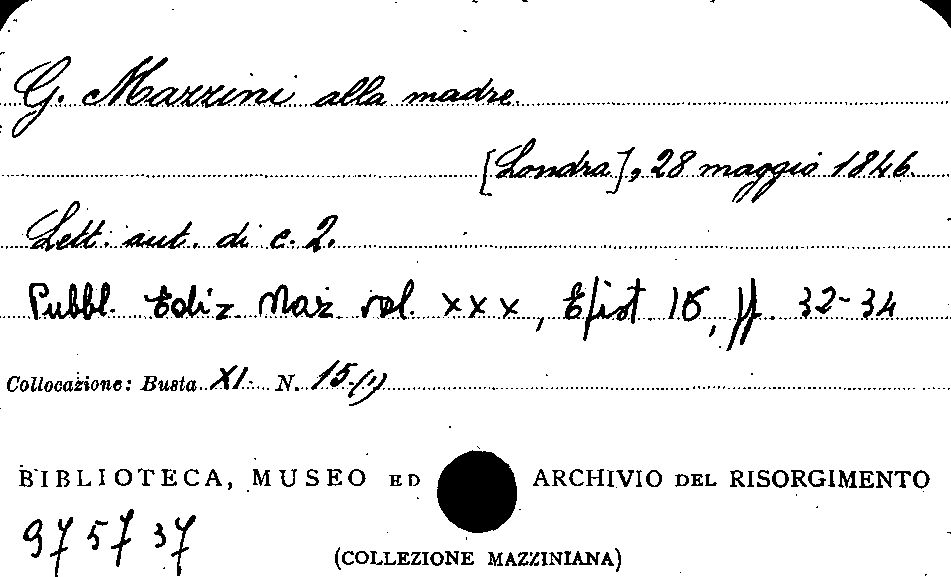 G. Mazzini alla madre
[Londra], 28 maggio 1846.
Lett. aut. di c. 2.
Pubbl. Ediz Maz vol. XXX, Epist 16, pp. 32-34
Collocazione: Busta XI. N. 15 (1)
BIBLIOTECA, MUSEO ED ARCHIVIO DEL RISORGIMENTO
975737
(COLLEZIONE MAZZINIANA)